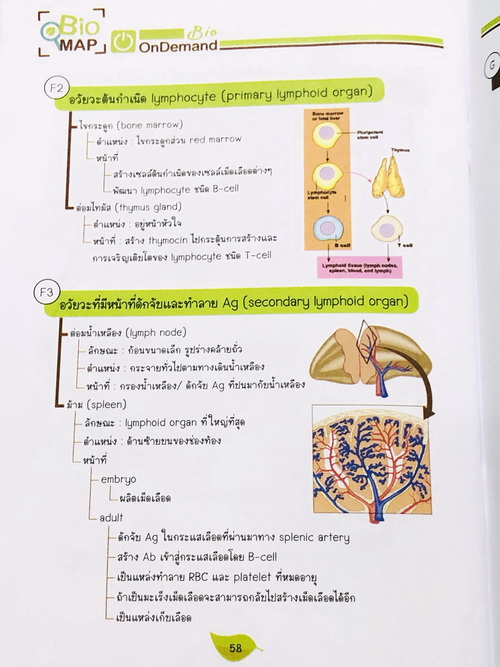 Bio
MAP
Bio
OnDemand
G
F2
อวัยวะต้นกำเนิด lymphocyte (primary lymphoid organ)
ไขกระดูก (bone marrow)
ตำแหน่ง : ไขกระดูกส่วน red marrow
หน้าที่
สร้างเซลล์ต้นกำเนิดของเซลล์เม็ดเลือดต่างๆ
พัฒนา lymphocyte ชนิด B-cell
ต่อมไทมัส (thymus gland)
ตำแหน่ง : อยู่หน้าหัวใจ
หน้าที่ : สร้าง thymocin ไปกระตุ้นการสร้างและ
การเจริญเติบโตของ lymphocyte ชนิด T-cell
Bone marrow
or fetal liver
Pluripotent
stem cell
Thymus
Lymphocyte
stem cell
B cell
T cell
Lymphoid tissue (lymph nodes,
spleen, blood, and lymph)
F3
อวัยวะที่มีหน้าที่ดักจับและทำลาย Ag (secondary lymphoid organ)
ต่อมน้ำเหลือง (lymph node)
ลักษณะ : ก้อนขนาดเล็ก รูปร่างคล้ายถั่ว
ตำแหน่ง : กระจายทั่วไปตามทางเดินน้ำเหลือง
หน้าที่ : กรองน้ำเหลือง/ ดักจับ Ag ที่ปนมากับน้ำเหลือง
ม้าม (spleen)
ลักษณะ : lymphoid organ ที่ใหญ่ที่สุด
ตำแหน่ง : ด้านซ้ายบนของช่องท้อง
หน้าที่
embryo
ผลิตเม็ดเลือด
adult
ดักจับ Ag ในกระแสเลือดที่ผ่านมาทาง splenic artery
สร้าง Ab เข้าสู่กระแสเลือดโดย B-cell
เป็นแหล่งทำลาย RBC และ platelet ที่หมดอายุ
ถ้าเป็นมะเร็งเม็ดเลือดจะสามารถกลับไปสร้างเม็ดเลือดได้อีก
เป็นแหล่งเก็บเลือด
58